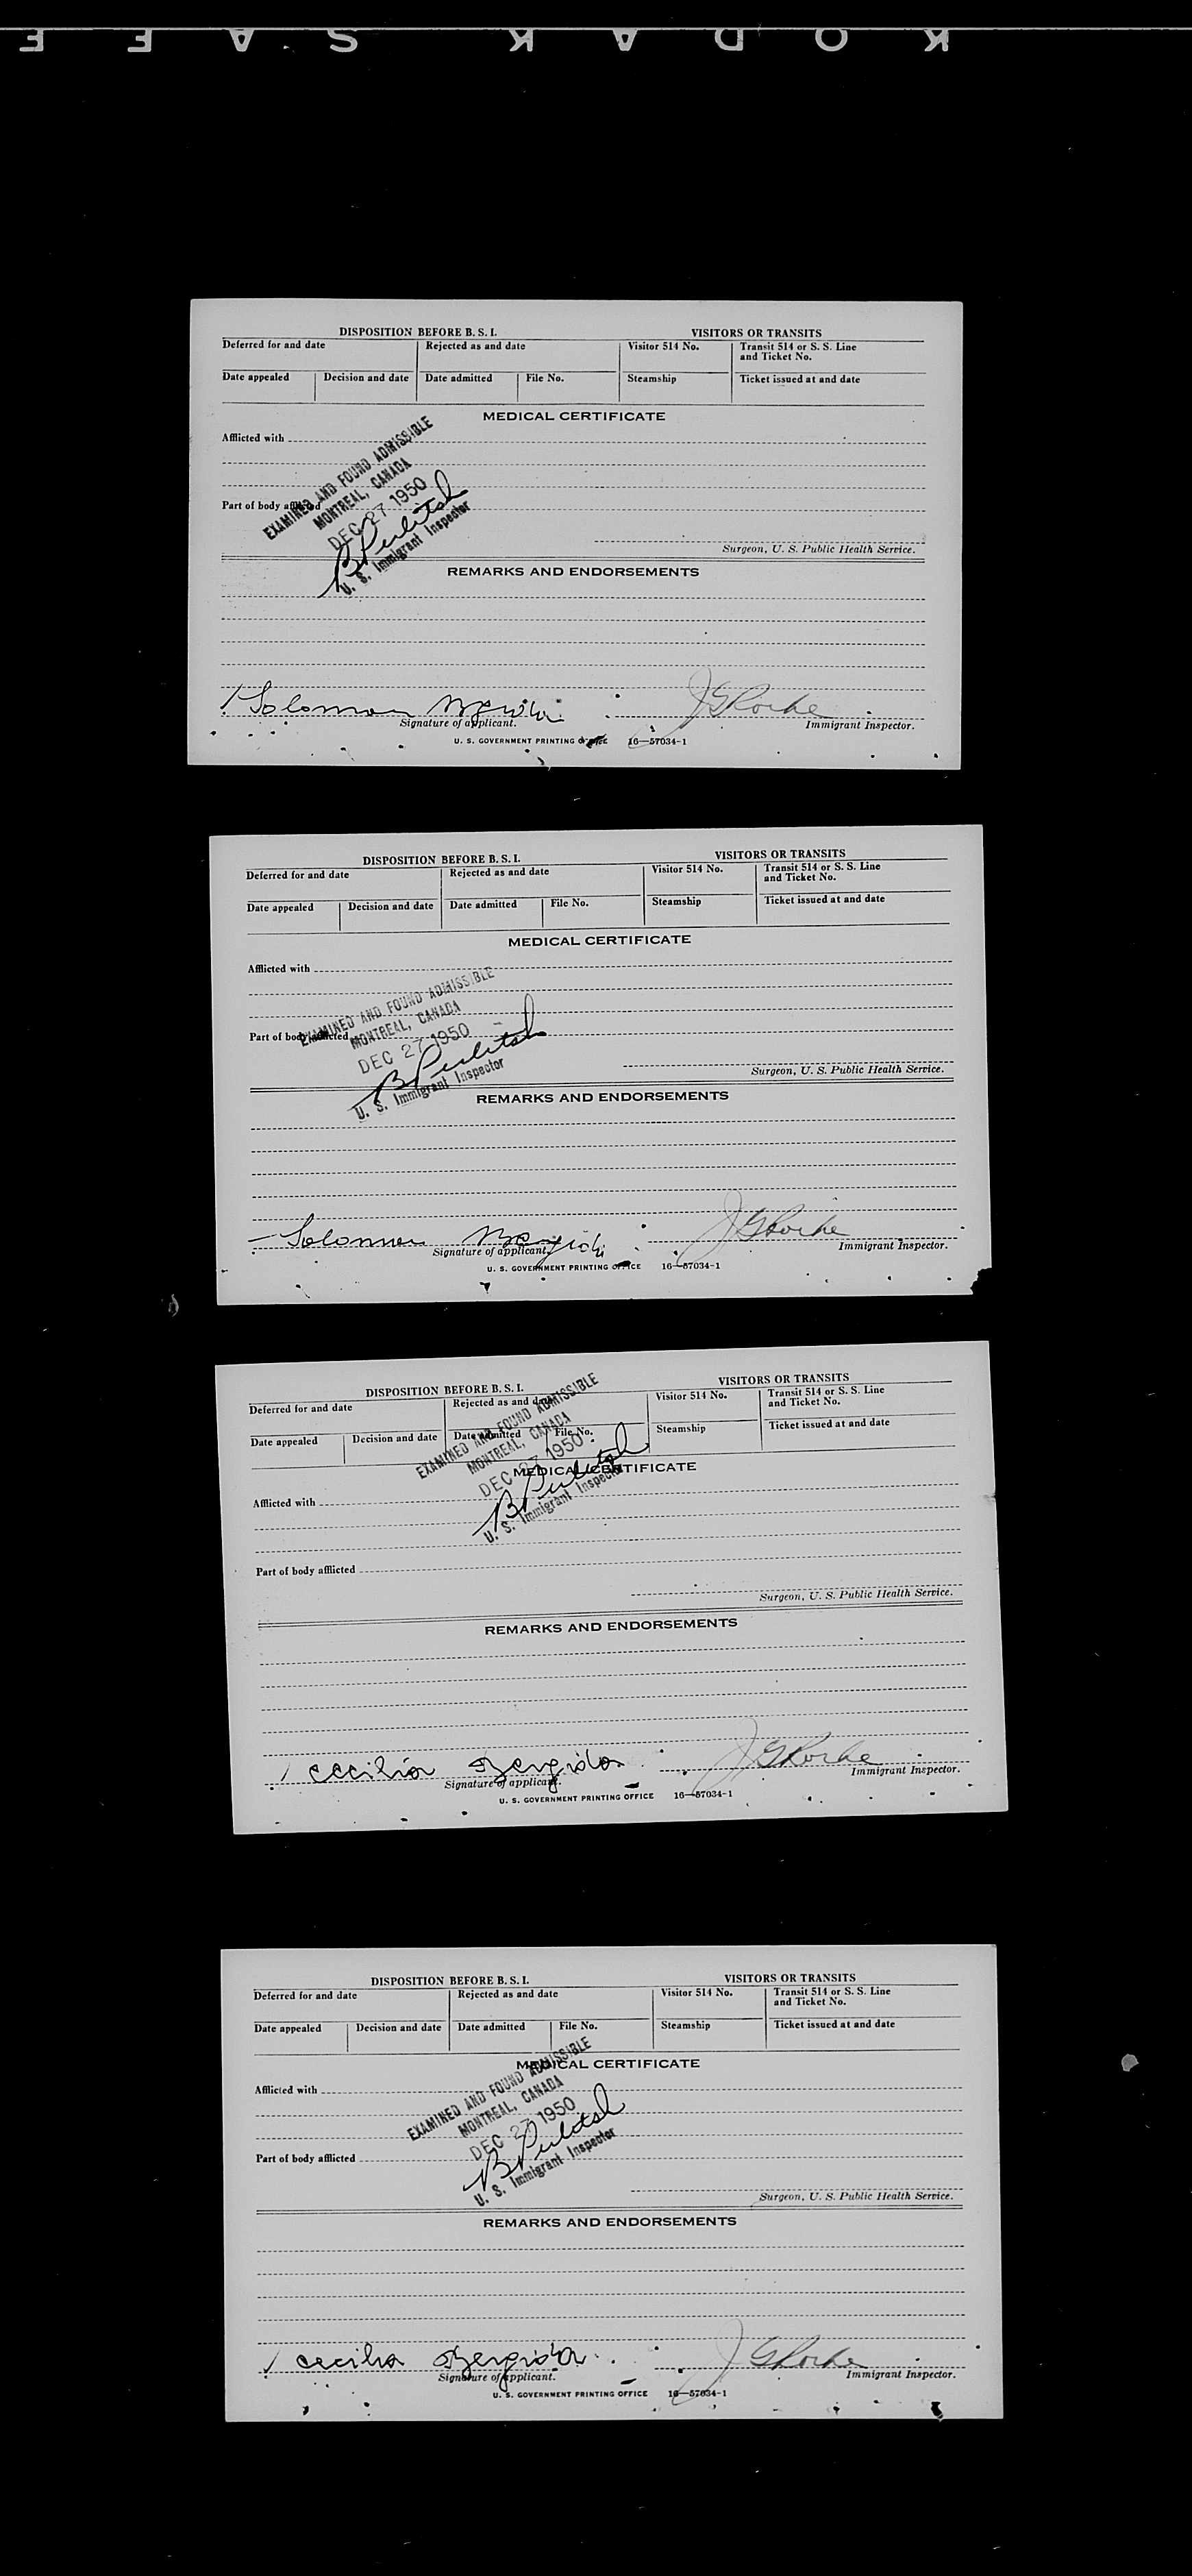 KODAK SAFE
DISPOSITION BEFORE B. S. I. VISITORS OR TRANSITS
Deferred for and date Rejected as and date Visitor 514 No. Transit 514 or S. S. Line and Ticket No.
Date appealed Decision and date Date admitted File No. Steamship Ticket issued at and date
MEDICAL CERTIFICATE
Afflicted with
EXAMINED AND FOUND ADMISSIBLE
MONTREAL, CANADA
Part of body afflicted
DEC 27 1950
U. S. Immigrant Inspector
Surgeon, U. S. Public Health Service.
REMARKS AND ENDORSEMENTS
Solomon
Signature of applicant. Immigrant Inspector.
U. S. GOVERNMENT PRINTING OFFICE 16—57034-1
DISPOSITION BEFORE B. S. I. VISITORS OR TRANSITS
Deferred for and date Rejected as and date Visitor 514 No. Transit 514 or S. S. Line and Ticket No.
Date appealed Decision and date Date admitted File No. Steamship Ticket issued at and date
MEDICAL CERTIFICATE
Afflicted with
EXAMINED AND FOUND ADMISSIBLE
MONTREAL, CANADA
Part of body afflicted
DEC 27 1950
U. S. Immigrant Inspector
Surgeon, U. S. Public Health Service.
REMARKS AND ENDORSEMENTS
Solomon
Signature of applicant. Immigrant Inspector.
U. S. GOVERNMENT PRINTING OFFICE 16—57034-1
DISPOSITION BEFORE B. S. I. VISITORS OR TRANSITS
Deferred for and date Rejected as and date Visitor 514 No. Transit 514 or S. S. Line and Ticket No.
Date appealed Decision and date Date admitted File No. Steamship Ticket issued at and date
EXAMINED AND FOUND ADMISSIBLE
MONTREAL, CANADA
DEC 27 1950
MEDICAL CERTIFICATE
U. S. Immigrant Inspector
Afflicted with
Part of body afflicted
Surgeon, U. S. Public Health Service.
REMARKS AND ENDORSEMENTS
Cecilia
Signature of applicant. Immigrant Inspector.
U. S. GOVERNMENT PRINTING OFFICE 16—57034-1
DISPOSITION BEFORE B. S. I. VISITORS OR TRANSITS
Deferred for and date Rejected as and date Visitor 514 No. Transit 514 or S. S. Line and Ticket No.
Date appealed Decision and date Date admitted File No. Steamship Ticket issued at and date
MEDICAL CERTIFICATE
Afflicted with
EXAMINED AND FOUND ADMISSIBLE
MONTREAL, CANADA
DEC 27 1950
Part of body afflicted
U. S. Immigrant Inspector
Surgeon, U. S. Public Health Service.
REMARKS AND ENDORSEMENTS
Cecilia
Signature of applicant. Immigrant Inspector.
U. S. GOVERNMENT PRINTING OFFICE 16—57034-1